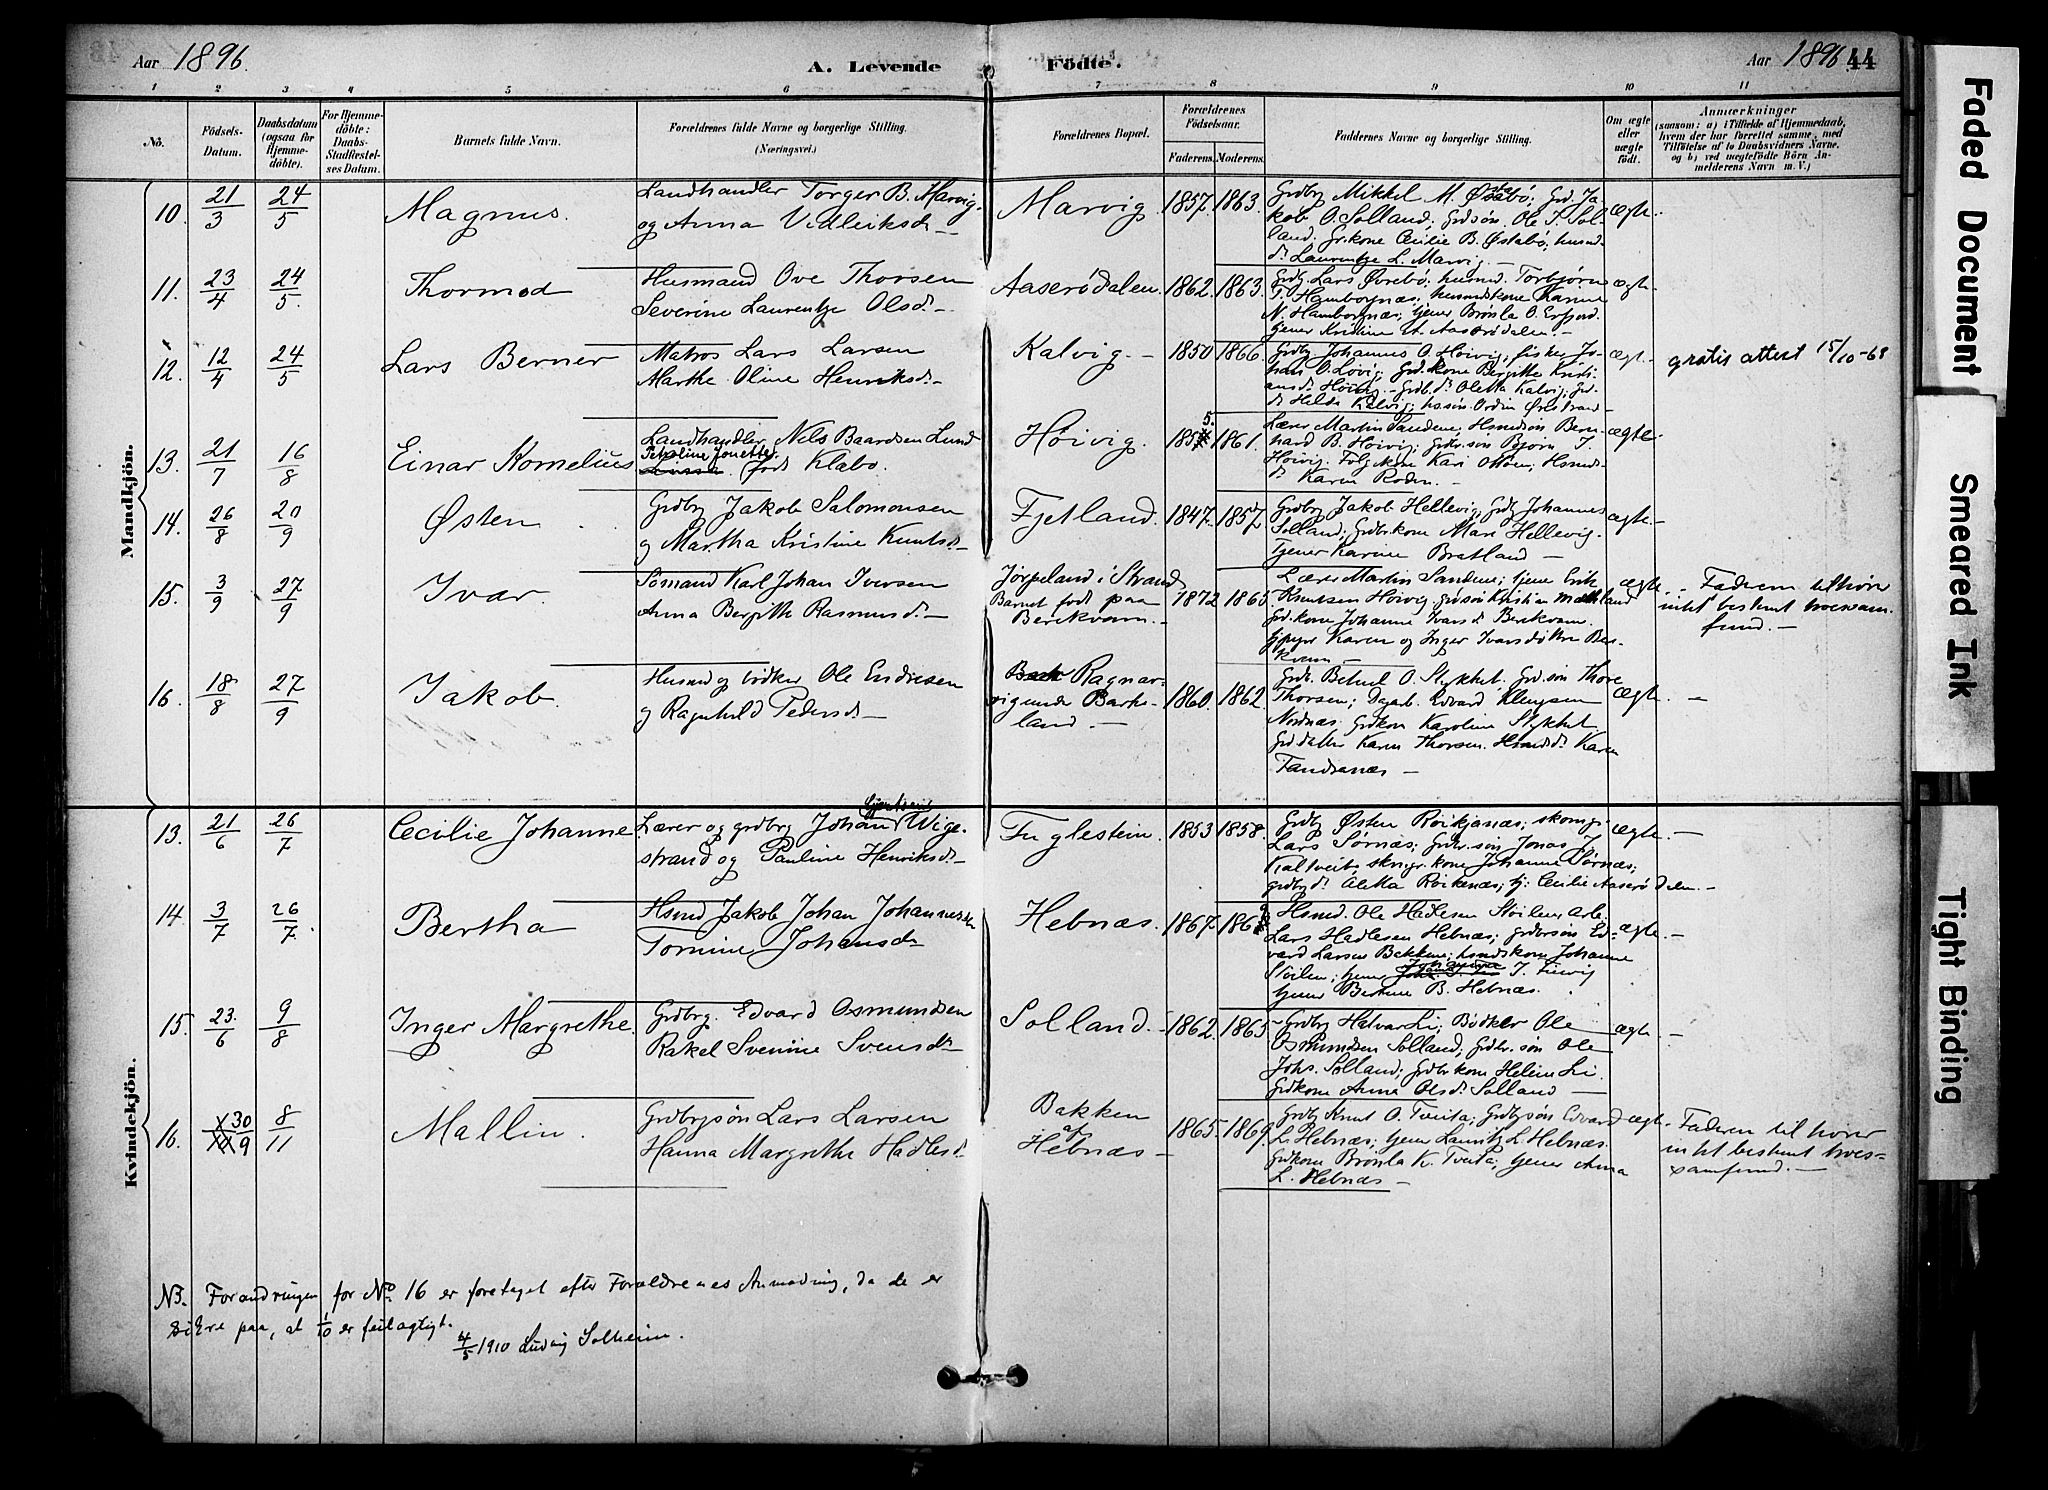 Aar 1896.
A. Levende Fødte.
Aar 1896 44
1 2 3 4 5 6 7 8 9 10 11
No.
Fødsels-Datum.
Daabsdatum (ogsaa for Hjemmedøbte).
For Hjemmedøbte: Daabs-Stadfæstelses Datum.
Barnets fulde Navn.
Forældrenes fulde Navne og borgerlige Stilling. (Næringsvei.)
Forældrenes Bopæl.
Forældrenes Fødselsaar.
Faderens. Moderens.
Faddernes Navne og borgerlige Stilling.
Om ægte eller uægte født.
Anmærkninger
(saasom: a) i Tilfælde af Hjemmedaab, hvem der har forrettet samme, med Tilføielse af to Daabsvidners Navne, og b) ved uægtefødte Børn Anmelderens Navn m. V.)
Mandkjøn.
10. 21/3 24/5 Magnus. Landhandler Torger B. Marvig
og Anna Vidleiksdr
Marvig 1857. 1863. Grdbr Mikkel M. Østabø; Grd. Ja-
kob O. Solland; Grdsøn Ole T. Sol-
land; Gr.kone Cecilie B. Østabø; husmd
dr Laurentze L. Marvig. ægte.
11. 23/4 24/5 Thormod Husmand Ove Thorsen
Severine Laurentze Olsdr
Aaserødalen. 1862. 1863. Grdb Lars Øvrebø; husmd. Torbjørn
T. Hamborgnæs; husmdskone Karine
N. Hamborgnæs; tjener Brønla O. Erfjord.
tjener Kristine Aaserødalen. ægte.
12. 12/4 24/5 Lars Berner Matros Lars Larsen
Marthe Oline Henriksdr
Kalvig. 1850 1866. Grdbr Johannes O. Høivig; fisker Jo-
han O. Løvig; Grd.kone Bergitte Kristi-
ansdr Høivig. Grdb.dr Oletta Kalvig; Grd
dr Helda Kalvig; ægte. gratis attest 15/10-68
13. 21/7 16/8 Einar Kornelius Landhandler Nils Baardsen Lund
Petroline Jonette født Klabo.
Høivig. 1855. 1861. Lærer Martin Sandene; Hsmdsøn Bern-
hard B. Høivig; grdbr.søn Bjørn T.
Høivig. Kari Hsmds-
dr Karen ægte.
14. 26/8 20/9 Østen Grdbr Jakob Salomonsen
og Martha Kristine Knutsdr
Fjetland. 1847. 1857. Grdbr Jakob Hellevig; Grdb Johannes
Solland; Grdbr.kone Mari Hellevig.
Tjener Karine Bratland ægte.
15. 3/9 27/9 Ivar. Sømand Karl Johan Iversen
Anna Bergith Rasmusdr
Jørpeland i Strand
Barnet født paa
Berekvam. 1872 1865. Lærer Martin Sandene; tjener Erik
Knutsen Høivig, Grdsøn Kristian Mæhland
Grd.kone Johanne Ivarsdr Berekvam.
Karen og Inger Ivarsdøttre Ber-
kvam ægte. Faderen tilhører
intet bestemt troessam-
fund.
16. 18/8 27/9 Jakob. Husmd og bødker Ole Endresen
og Ragnhild Pedersdr
Ragnar-
vigunder Barke-
land. 1860. 1862. Grdb. Betuel O. Stykket. Grd.søn Thore
Thorsen; Dagarb. Edvard Klengsen
Nordnæs. Grdkon Karoline Stykket
Grddatter Karen Thorsen. Hsmdsdr Karen
Tandranæs ægte.
Kvindekjøn.
13. 21/6 26/7 Cecilie Johanne. Lærer og grdbr Johan Gjertsen Wige-
strand og Pauline Henriksdr
Fuglestein. 1853 1858. Grdbr Østen Røikjanæs; skomgr
Lars Sørnæs; Grdbr.søn Jonas J.
Kaltveit; skmgr.kone Johanne Sørnæs;
grdbrdr Aletta Røikenæs; tj. Cecilie Aaserødalen. ægte.
14. 3/7 26/7 Bertha Hsmd Jakob Johan Johannesen
Tomine Johansdr
Hebnæs. 1867. 1869 Hsmd. Ole Hadlesen Støilen; Arb.
Lars Hadlesen Hebnæs; grdbrsøn Ed-
vard Larsen Bakken; hsmdskone Johanne
Støilen; tjener Johannine T. Liervig
tjener Bertine B. Hebnæs. ægte.
15. 23/6 9/8 Inger Margrethe. Grdbrg. Edvard Osmundsen
Rakel Svenine Svensdr
Solland. 1862. 1865. Grdbrg Halvar Li; Bødker Ole
Osmundsen Solland; Grdbr.søn Ole
Johs. Solland; Grdbrkone Helene Li.
Grdkone Anne Olsdr Solland ægte.
16. 30/9 8/11 Mallin. Grdbrgsøn Lars Larsen
Hanna Margrethe Hadlesdr
Bakken
af
Hebnæs 1865. 1869. Grdbr Knut O. Tveita; Grdbrsøn Edvard
L. Hebnæs; tjener Lauritz L. Hebnæs.
Grdkone Brønla K. Tveita; tjener Anna
L. Hebnæs ægte. Faderen tilhører
intet bestemt troes-
samfund.
NB. Forandringen for No 16 er foretaget efter Forældrenes Anmodning, da de er
sikre paa, at 1/10 er feilagtigt.
4/5 1910 Ludvig Solheim.
Faded Document
Smeared Ink
Tight Binding